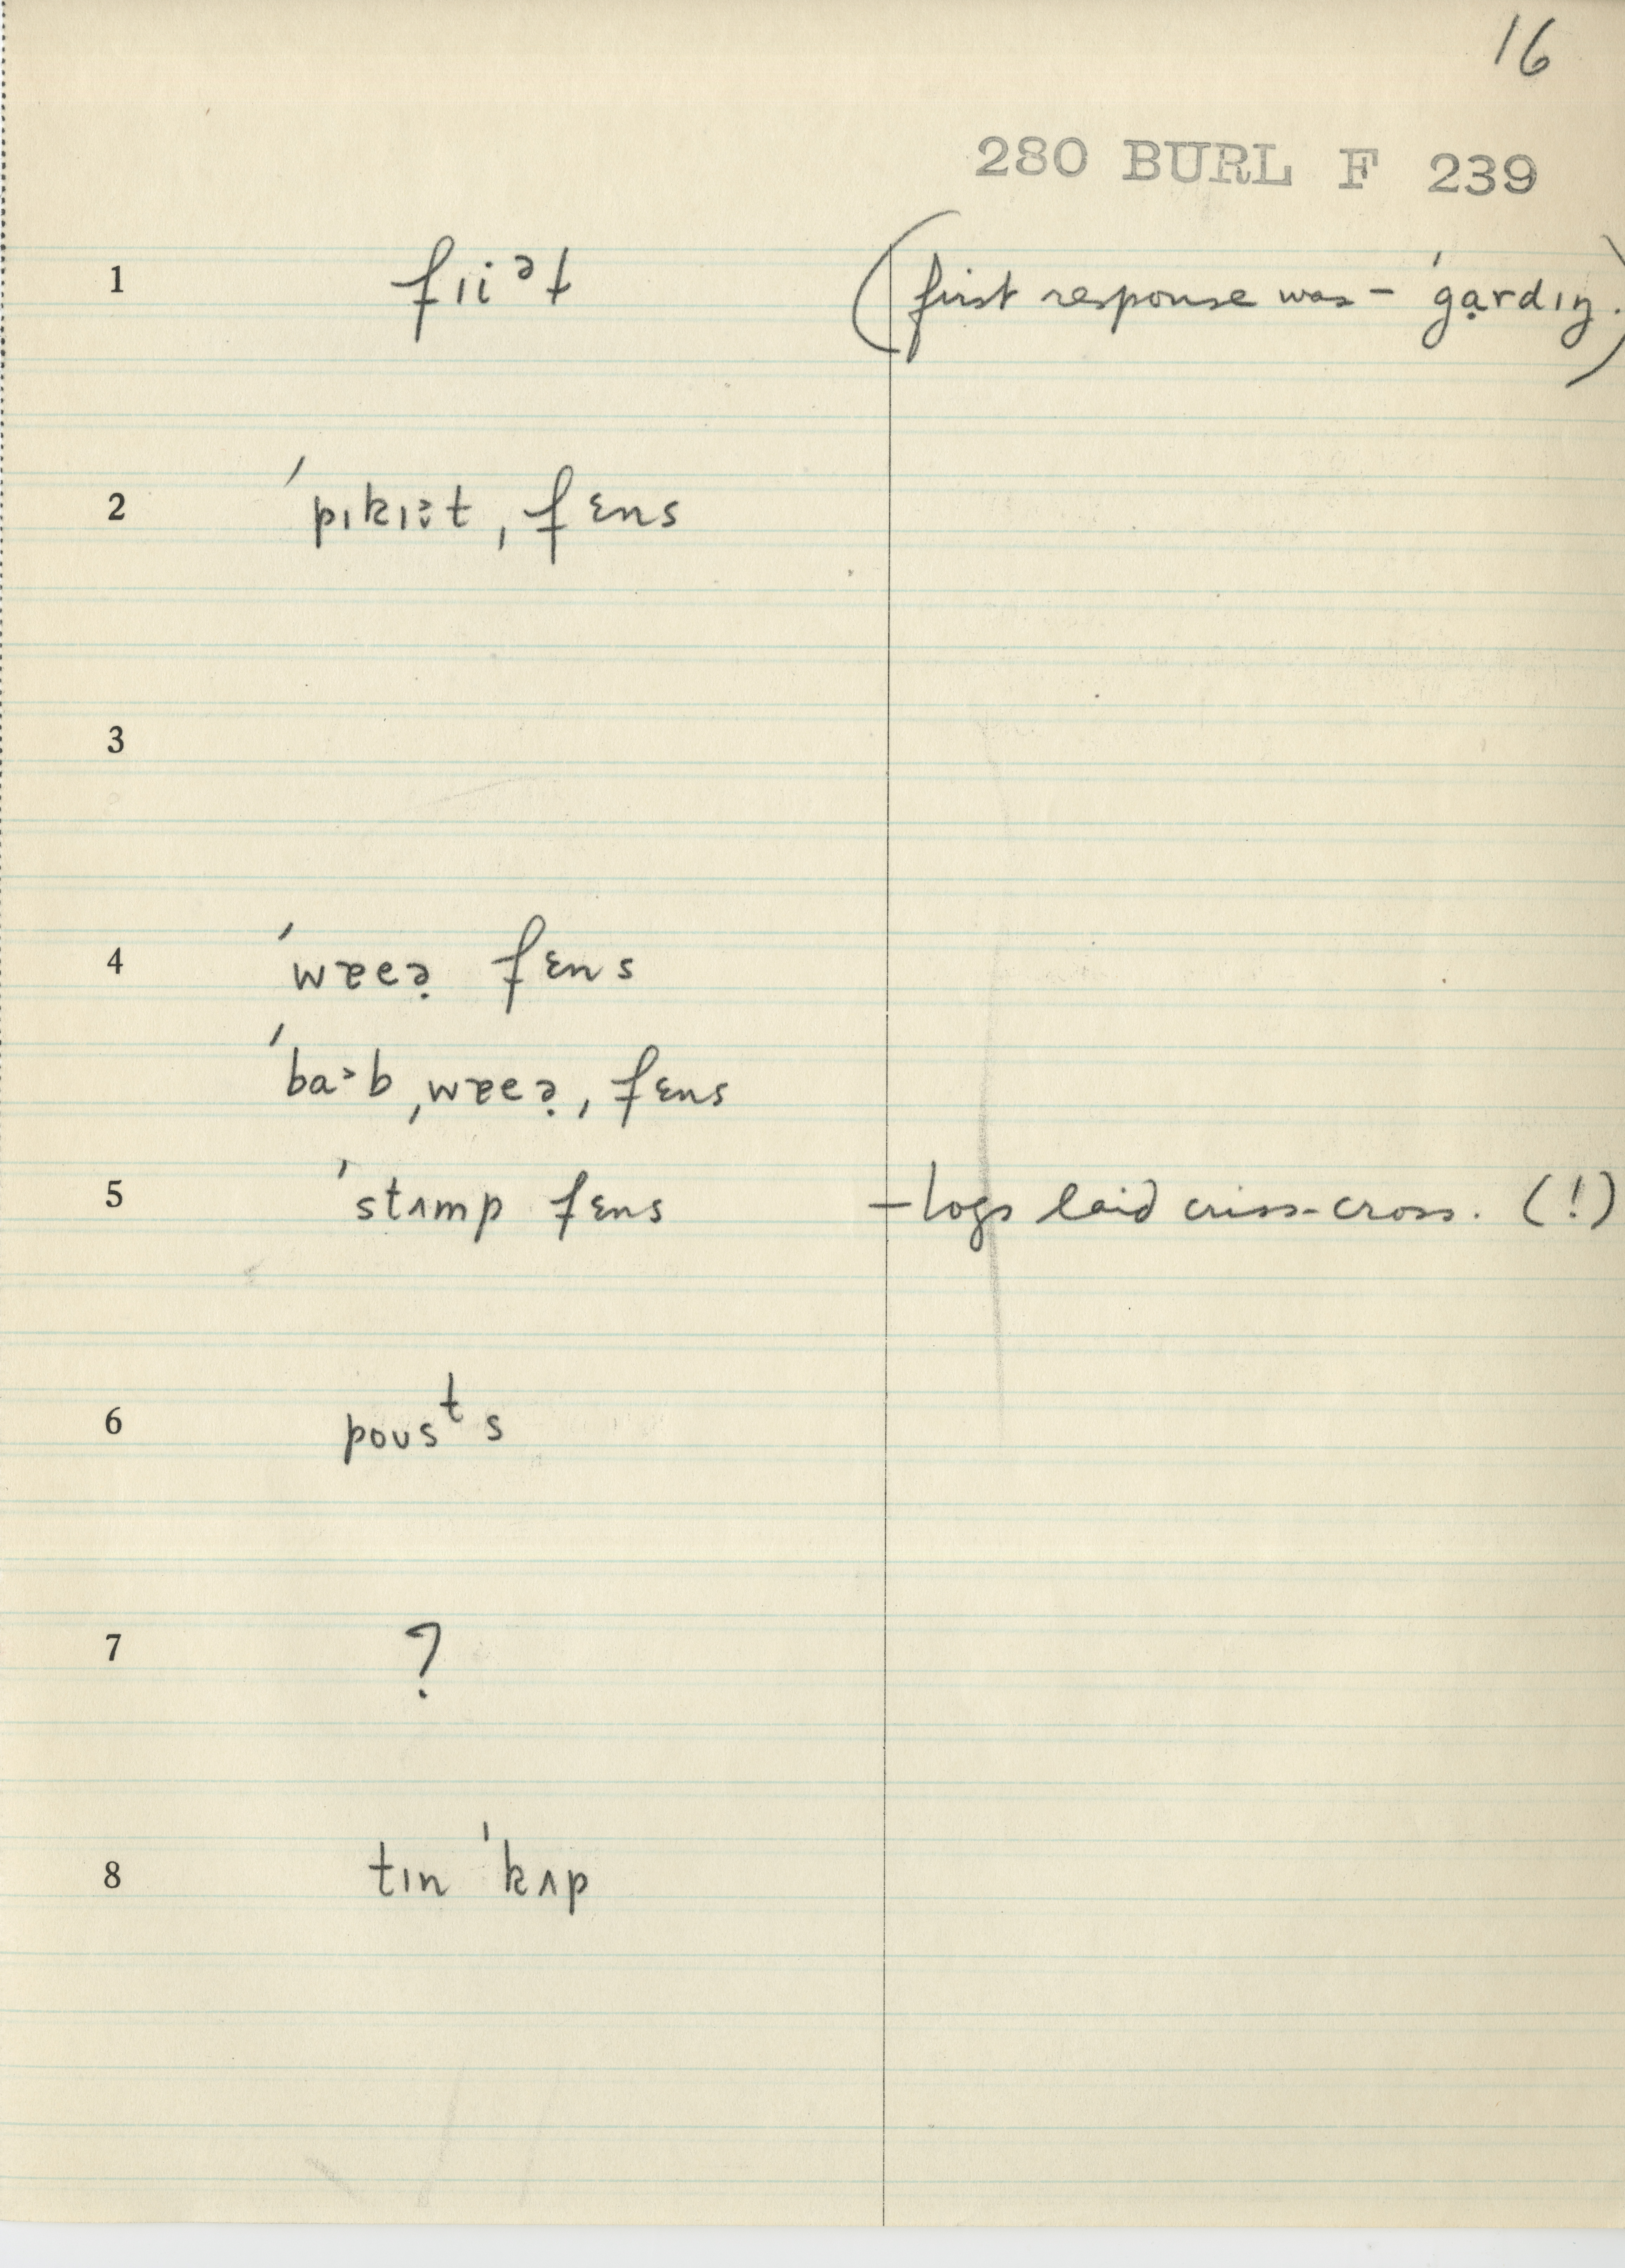 16
280 BURL F 239
1 fɪiᵊt (first response was – ˈgạrdɪŋ.)
2 ˈpɪkɪət ˌfɛns
3
4 ˈwɐeə̣ fɛns
ˈba˃b ˌwɐeə̣ ˌfɛns
5 ˈstʌmp fɛns – logs laid criss-cross. (!)
6 poʊsᵗs
7 ?
8 tɪn ˈkʌp